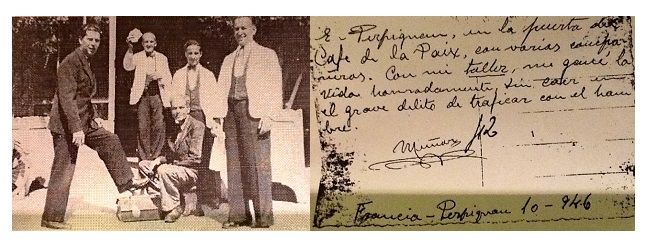 En Perpignan, en la puerta del
Cafe de la Paix, con varios compa
ñeros. Con mi taller, me gané la
vida honradamente, sin caer en
el grave delito de traficar con el ham
bre.
Muñoz
Francia-Perpignan 10-946